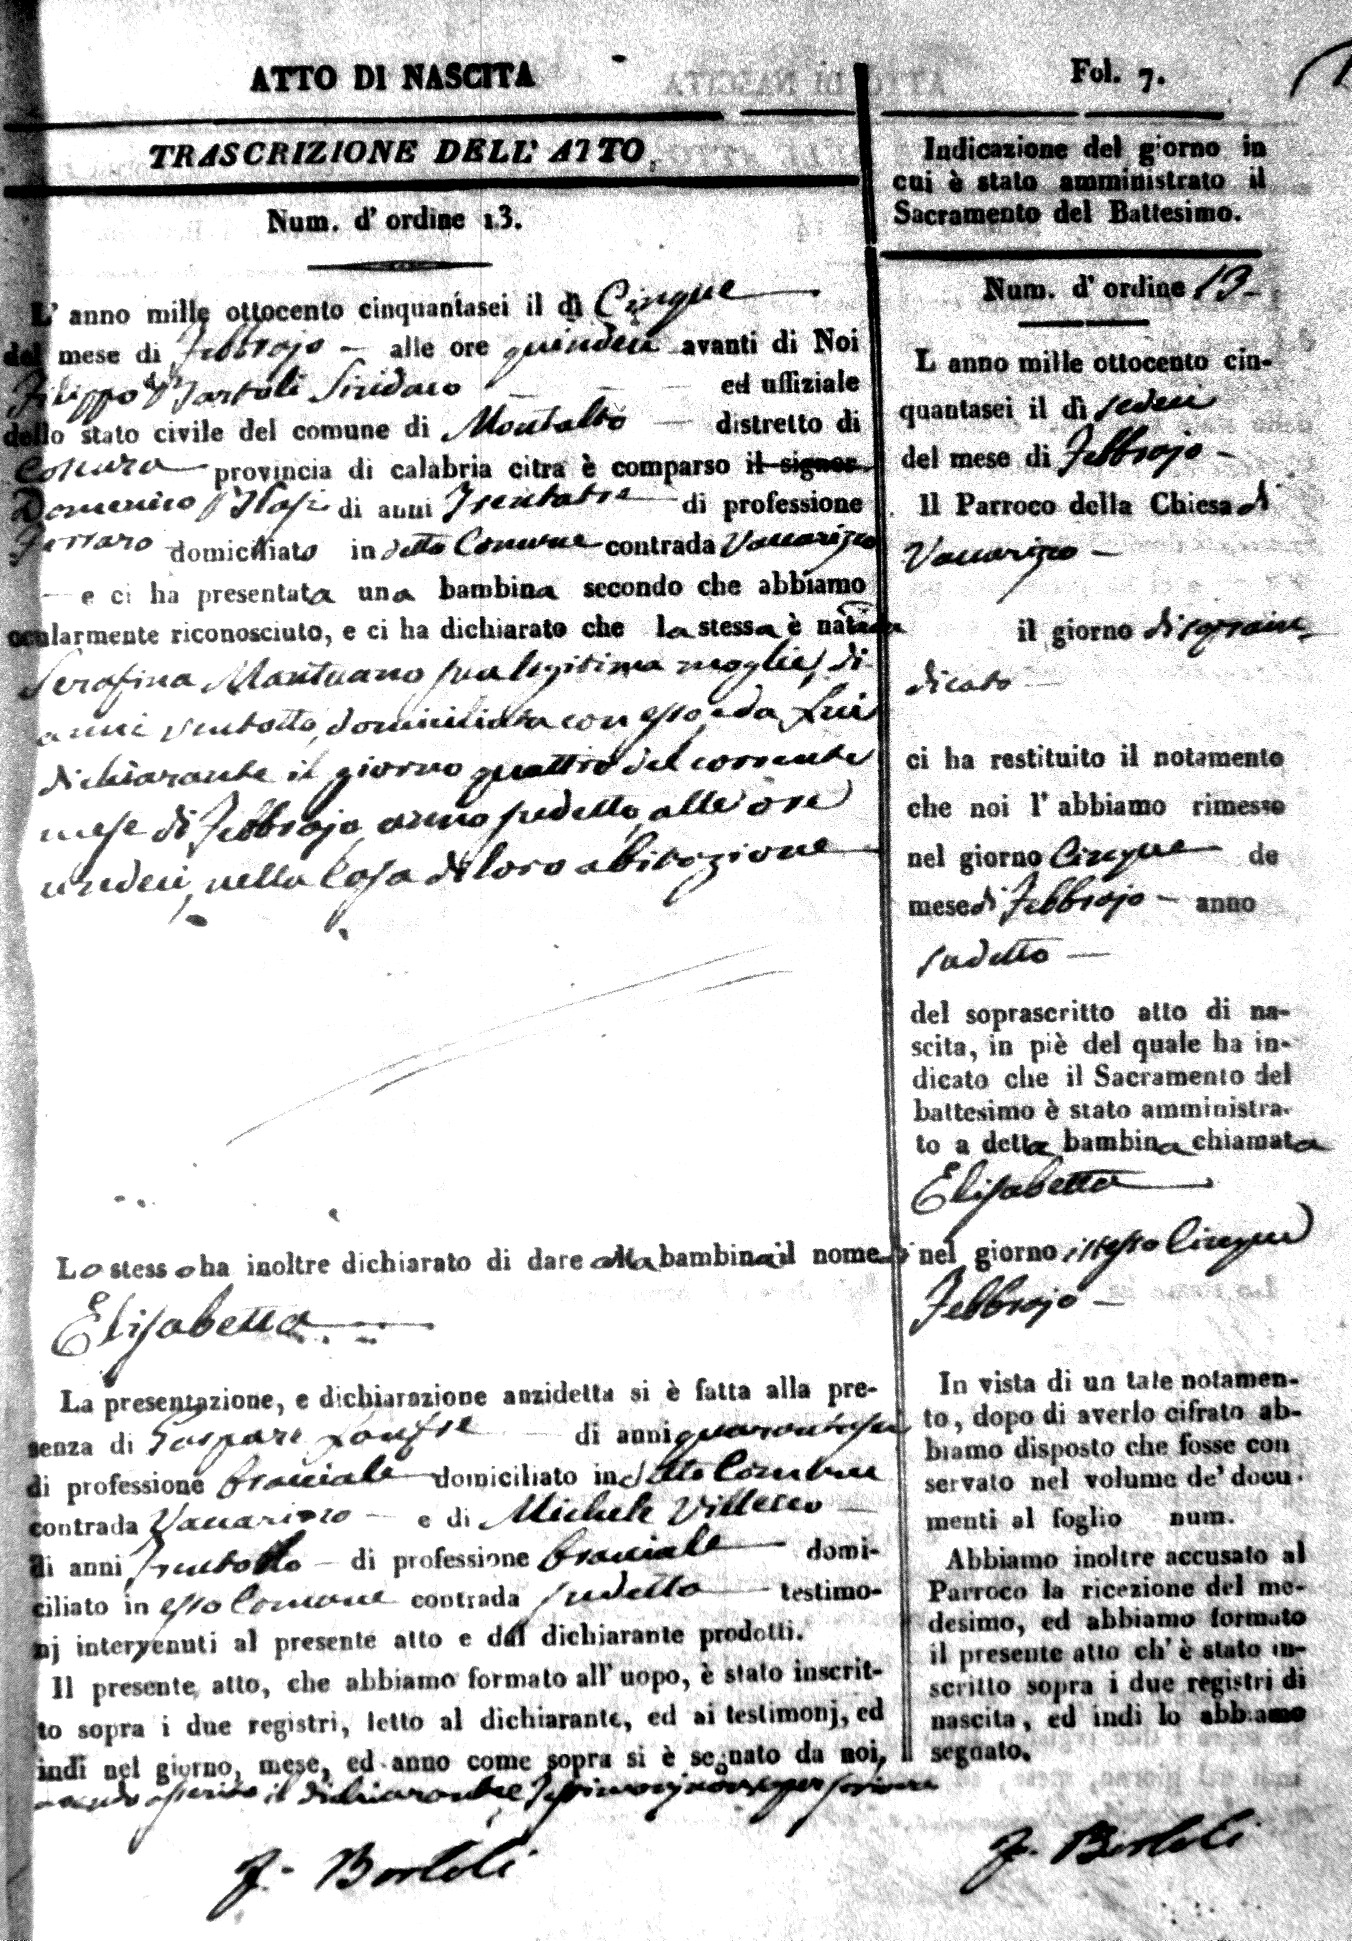 ATTO DI NASCITA
TRASCRIZIONE DELL' ATTO.
Num. d' ordine 13.
L' anno mille ottocento cinquantasei il dì Cinque
del mese di Febbrajo alle ore quindeci avanti di Noi
Filippo Bartoli Sindaco ed uffiziale
dello stato civile del comune di Montalto distretto di
Cosenza provincia di calabria citra è comparso il signor
Domenico di anni Trentatre di professione
Ferraro domiciliato in detto Comune contrada Vaccarizzo
e ci ha presentata una bambina secondo che abbiamo
ocularmente riconosciuto, e ci ha dichiarato che la stessa è nata da
Serafina Mantuano sua legitima moglie, di
anni ventotto, domiciliata con esso, e da Lui
dichiarante il giorno quattro del corrente
mese di Febbrajo anno sudetto, alle ore
undeci, nella Casa di loro abitazione
Lo stesso ha inoltre dichiarato di dare alla bambina il nome di
Elisabetta
La presentazione, e dichiarazione anzidetta si è fatta alla pre-
senza di Gaspare di anni quarantasei
di professione bracciale domiciliato in detto Comune
contrada Vaccarizzo e di Michele Villecco
di anni Trentotto di professione bracciale domi-
ciliato in esso Comune contrada sudetta testimo-
nj intervenuti al presente atto e dal dichiarante prodotti.
Il presente atto, che abbiamo formato all' uopo, è stato inscrit-
to sopra i due registri, letto al dichiarante, ed ai testimonj, ed
indi nel giorno, mese, ed anno come sopra si è segnato da noi,
avendo asserito il dichiarante Testimonj non saper scrivere
F. Bartoli
Fol. 7.
Indicazione del giorno in
cui è stato amministrato il
Sacramento del Battesimo.
Num. d' ordine 13
L anno mille ottocento cin-
quantasei il dì sedeci
del mese di Febbrajo
Il Parroco della Chiesa di
Vaccarizzo
il giorno disoprain-
dicato
ci ha restituito il notamento
che noi l' abbiamo rimesso
nel giorno Cinque de
mese di Febbrajo anno
sudetto
del soprascritto atto di na-
scita, in piè del quale ha in-
dicato che il Sacramento del
battesimo è stato amministra-
to a detta bambina chiamata
Elisabetta
nel giorno istesso Cinque
Febbrajo
In vista di un tale notamen-
to, dopo di averlo cifrato ab-
biamo disposto che fosse con
servato nel volume de' docu-
menti al foglio num.
Abbiamo inoltre accusato al
Parroco la ricezione del me-
desimo, ed abbiamo formato
il presente atto ch' è stato in-
scritto sopra i due registri di
nascita, ed indi lo abbiamo
segnato.
F. Bartoli